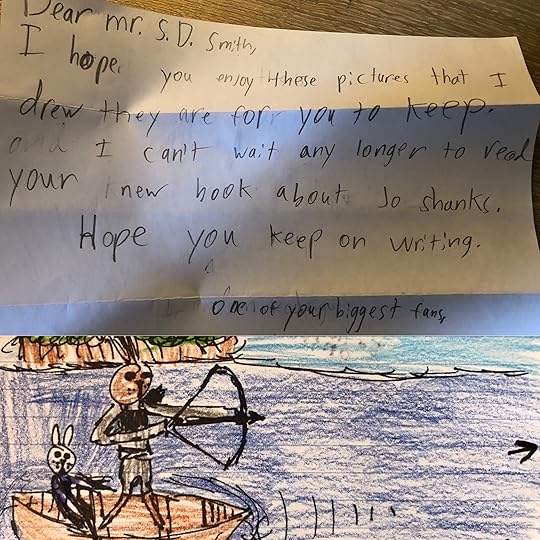 Dear mr. S.D. Smith,
I hope you enjoy these pictures that I
drew they are for you to keep.
and I can't wait any longer to read
your new book about Jo Shanks.
Hope you keep on writing.
One of your biggest fans,